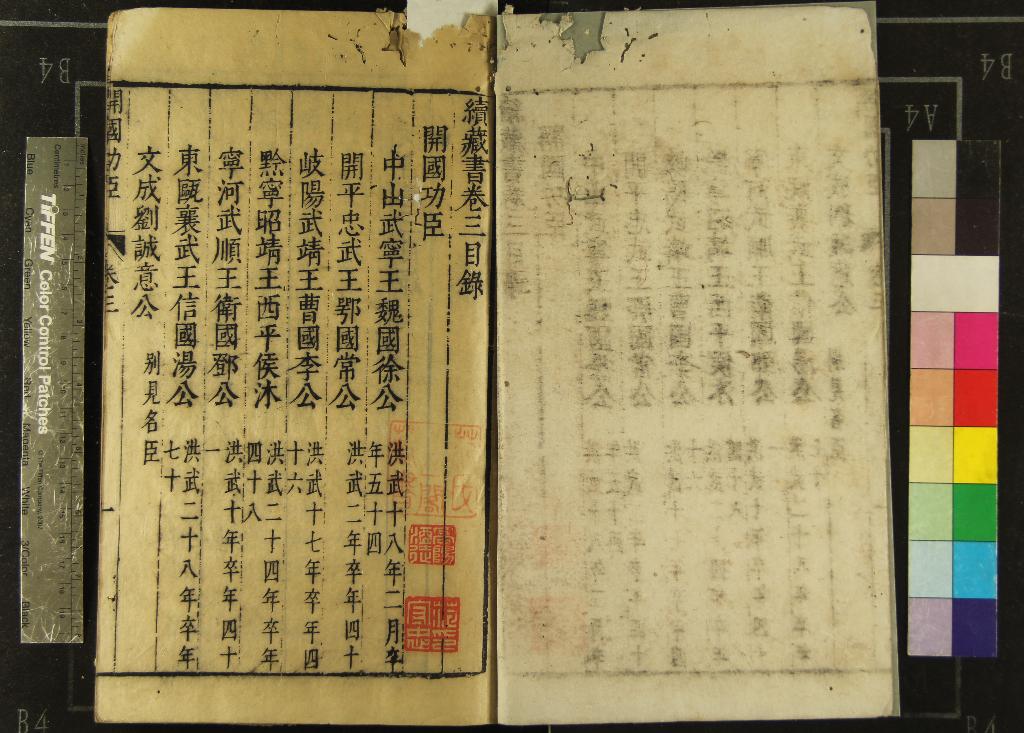 續藏書卷三目錄
開國功臣
中山武寧王魏國徐公 洪武十八年二月卒年五十四
開平忠武王鄂國常公 洪武二年卒年四十
岐陽武靖王曹國李公 洪武十七年卒年四十六
黔寧昭靖王西平侯沐 洪武二十四年卒年四十八
寧河武順王衛國鄧公 洪武十年卒年四十一
東甌襄武王信國湯公 洪武二十八年卒年七十
文成劉誠意公 別見名臣
開國功臣 卷三 一
TIFFEN Color Control Patches
Blue Cyan Green Yellow Red Magenta White 3/Color Black
Centimetres
Inches
B4
B4
A4
B4
B4